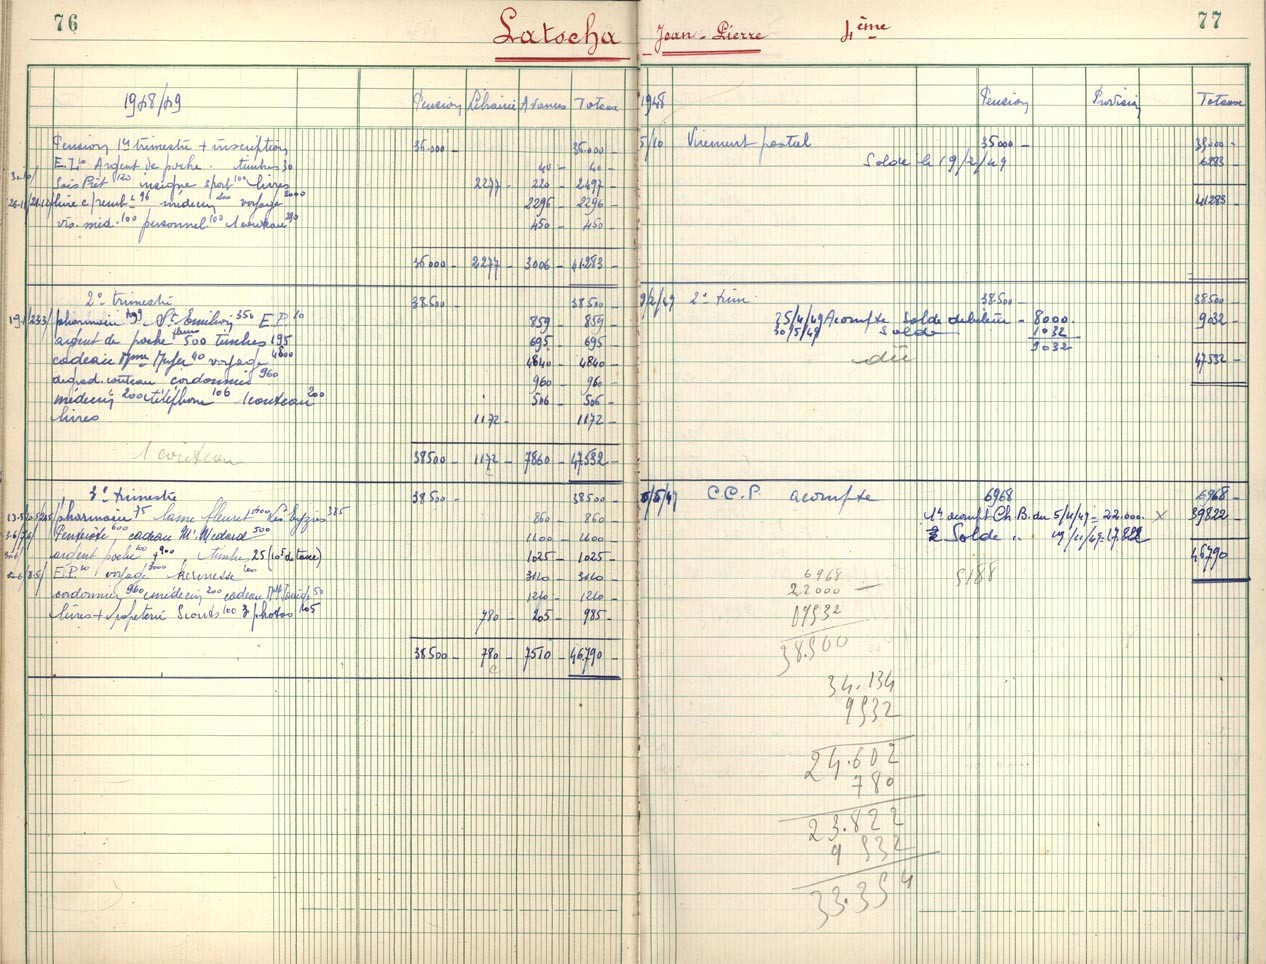 76
Latscha
1948/49 Pension Librairie Avances Totaux
Pension 1er trimestre + inscription 36.000 - 36.000 -
E.P. 10 Argent de poche. timbres 30 40 - 40 -
insigne sport 100 livres 2277 - 220 - 2497 -
c/remb. 96 médecin 200 voyage 2000 2296 - 2296 -
vis. méd. 100 personnel 100 1 couteau 250 450 - 450 -
36000 - 2277 - 3006 - 41283 -
2e trimestre 38500 - 38500 -
pharmacie 199 St Emilion 350 E.P. 10 859 - 859 -
argent de poche 500 timbres 195 695 - 695 -
cadeau Mme 40 voyage 4800 4840 - 4840 -
dégrad. couteau cordonnier 960 960 - 960 -
médecin 200 téléphone 106 1 couteau 200 506 - 506 -
livres 1172 - 1172 -
1 couteau
38500 - 1172 - 7860 - 47532 -
3e trimestre 38500 - 38500 -
pharmacie 75 lame fleuret 400 Les Eyzies 385 860 - 860 -
600 cadeau Mr Médard 500 1100 - 1100 -
argent poche 100 + 900, timbres 25 1025 - 1025 -
E.P. 10 voyage 3000 kermesse 100 3110 - 3110 -
cordonnier 960 médecin 200 cadeau 50 1210 - 1210 -
livres + papeterie Scouts 100 3 photos 105 780 - 205 - 985 -
38500 - 780 - 7510 - 46.790 -
77
Jean-Pierre 4ème
1948 Pension Provision Totaux
5/10 Virement postal 35000 - 35000 -
Solde le 19/2/49 6283
41283 -
9/2/49 2e trim. 38500 - 38500 -
25/4/49 Acompte solde débiteur - 8000. 9032 -
30/5/49 Solde 1032
9032
dû 47532 -
5/5/49 C.C.P. acompte 6968 6968 -
1er acompt Ch. B. du 5/11/49 = 22.000. X 39822 -
2 Solde " 19/11/49 = 17.822
46790 -
6968 9188
22000
09532
38.500
34.134
9532
24.602
780
23.822
9532
33.354